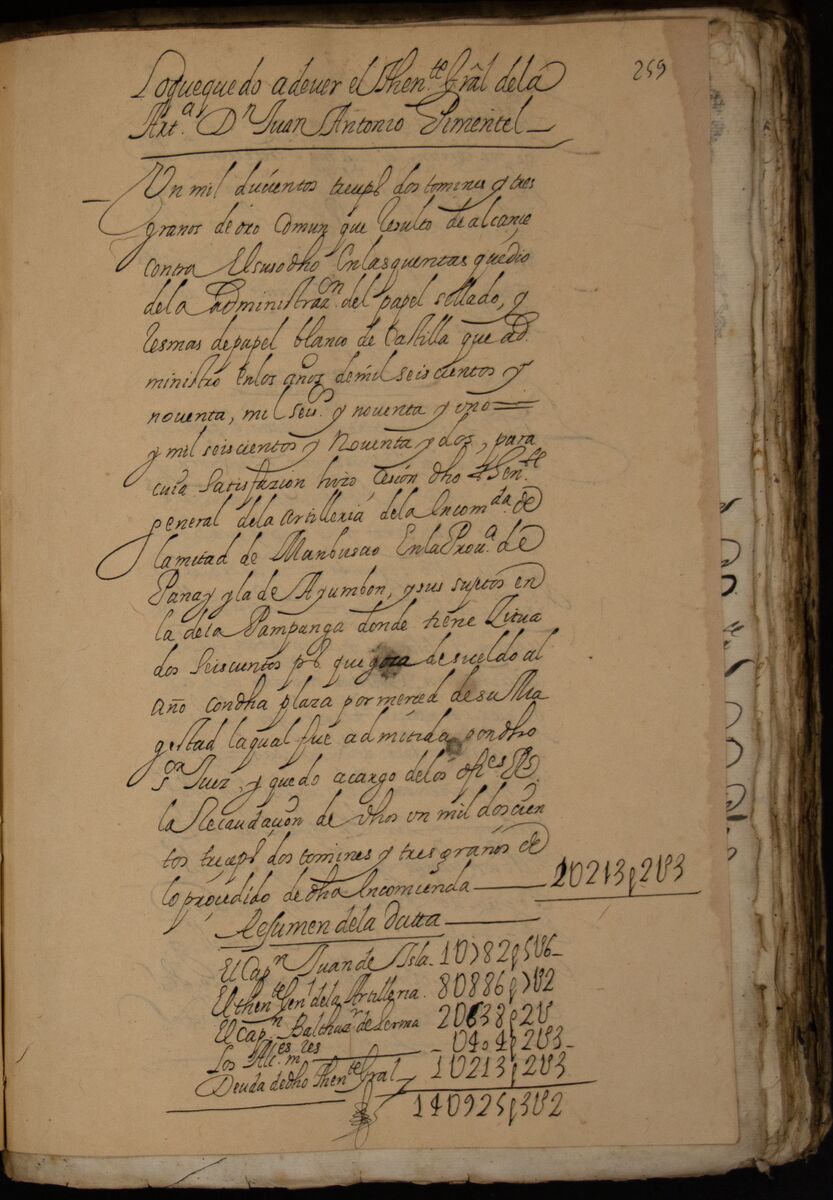 259
Loquequedo adever el Then.te Grâl dela
Art.a Dn Juan Antonio Pimentel
Un mil ducientos trecepS dos tomines y tres
granos de oro Comun que Resulto de alcançe
contra Elsusodho Enlasquentas quedio
dela administraz.on del papel sellado, y
Resmas depapel blanco de Castilla que ad
ministro Enlos años demil seiscientos y
noventa, mil seis.o y noventa y uno
y mil seiscientos y Noventa y dos, para
cuia Satisfazion hizo cesion dho Then.te
general dela artilleria dela Incom.da de
lamitad de Manbusao EnlaProu.a de
Panay y la de Ayumbon, y sus sujetos en
la dela Pampanga donde tiene Zitua
dos Seiscientos pS que goza desueldo al
año condha plaza por merced desu Ma
gestad laqual fue admitida pordho
s.or Juez, y quedo acargo delos ofi.es Rs.
la Recaudaçion de dhos un mil doscien
tos trecepS dos tomines y tres granos de
lo proçedido de dha Incomienda 1U213p2U3
Resumen dela Datta
El Cap.n Juan de Isla. 1U782p5U6
El then.te Gen.l dela Artilleria. 8U886p7U2
El Cap.n Balthaz.r de Lerma 2U638p2U
Los Alc.es m.res U404p2U3
Deuda dedho Then.te Gral 1U213p2U3
14U925p3U2